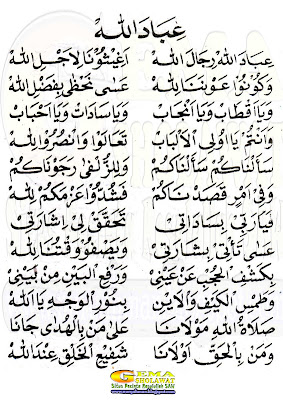 عِبَادَ اللهْ
عِبَادَ اللهْ رِجَالَ اللهْ اَغِيْثُوْنَا لِاَجْلِ اللهْ
وَكُوْنُوْا عَوْنَنَا لِلهْ عَسَى نَحْظَى بِفَضْلِ اللهْ
وَيَا اَقْطَابْ وَيَا اَنْجَابْ وَيَا سَادَاتْ وَيَا اَحْبَابْ
وَاَنْتُمْ يَا اُولِى الْاَلْبَابْ تَعَالَوْا وَانْصُرُوْا لِلهْ
سَاَلْنَاكُمْ سَاَلْنَاكُمْ وَلِلزُّلْفَى رَجَوْنَاكُمْ
وَفِى اَمْرٍ قَصَدْنَاكُمْ فَشُدُّوْا عَزْمَكُمْ لِلهْ
فَيَارَبِّى بِسَادَاتِى تَحَقَّقْ لِى اِشَارَتِى
عَسَى تَأْتِى بِشَارَتِى وَيَصْفُوْ وَقْتُنَا لِلهْ
بِكَشْفِ الْحُجْبِ عَنْ عَيْنِى وَرَفْعِ الْبَيْنِ مِنْ بَيْنِى
وَطَمْسِ الْكَيْفِ وَالْاَيْنِ بِنُوْرِ الْوَجْهِ يَا اَللهْ
صَلَاةُ اللهْ مَوْلَانَا عَلَى مَنْ بِالْهُدَى جَانَا
وَمَنْ بِالْحَقِّ اَوْلَانَا شَفِيْعِ الْخَلْقِ عِنْدَ اللهْ
GEMA
SHOLAWAT
Situs Pecinta Rasulullah SAW